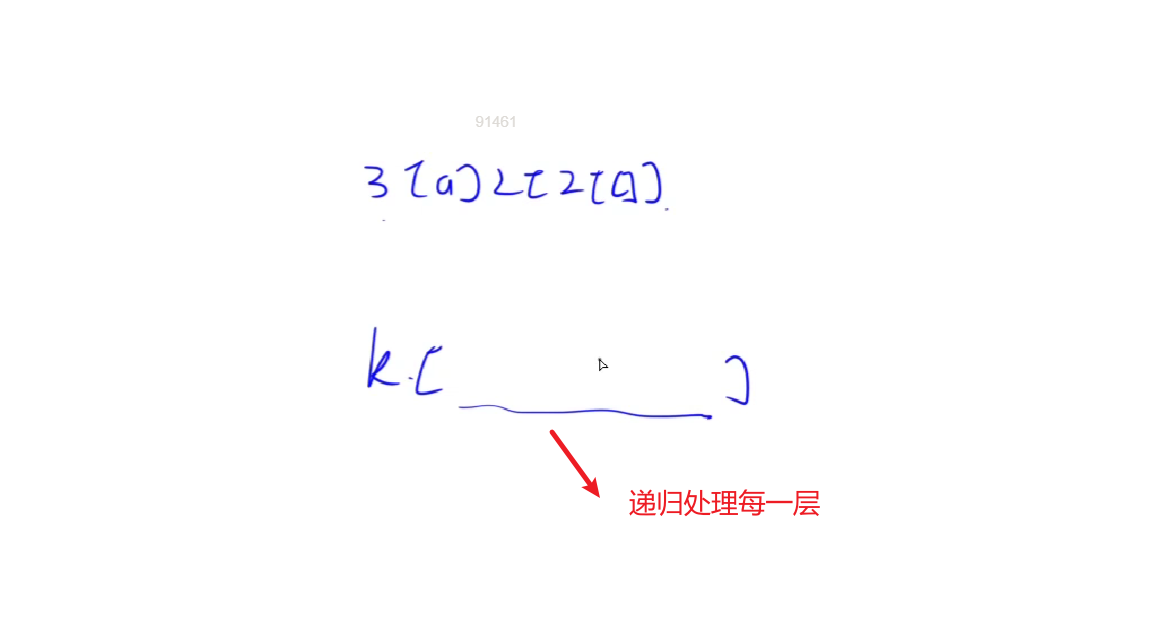 91461
3[a]2[2[a]]
k.[ ]
递归处理每一层